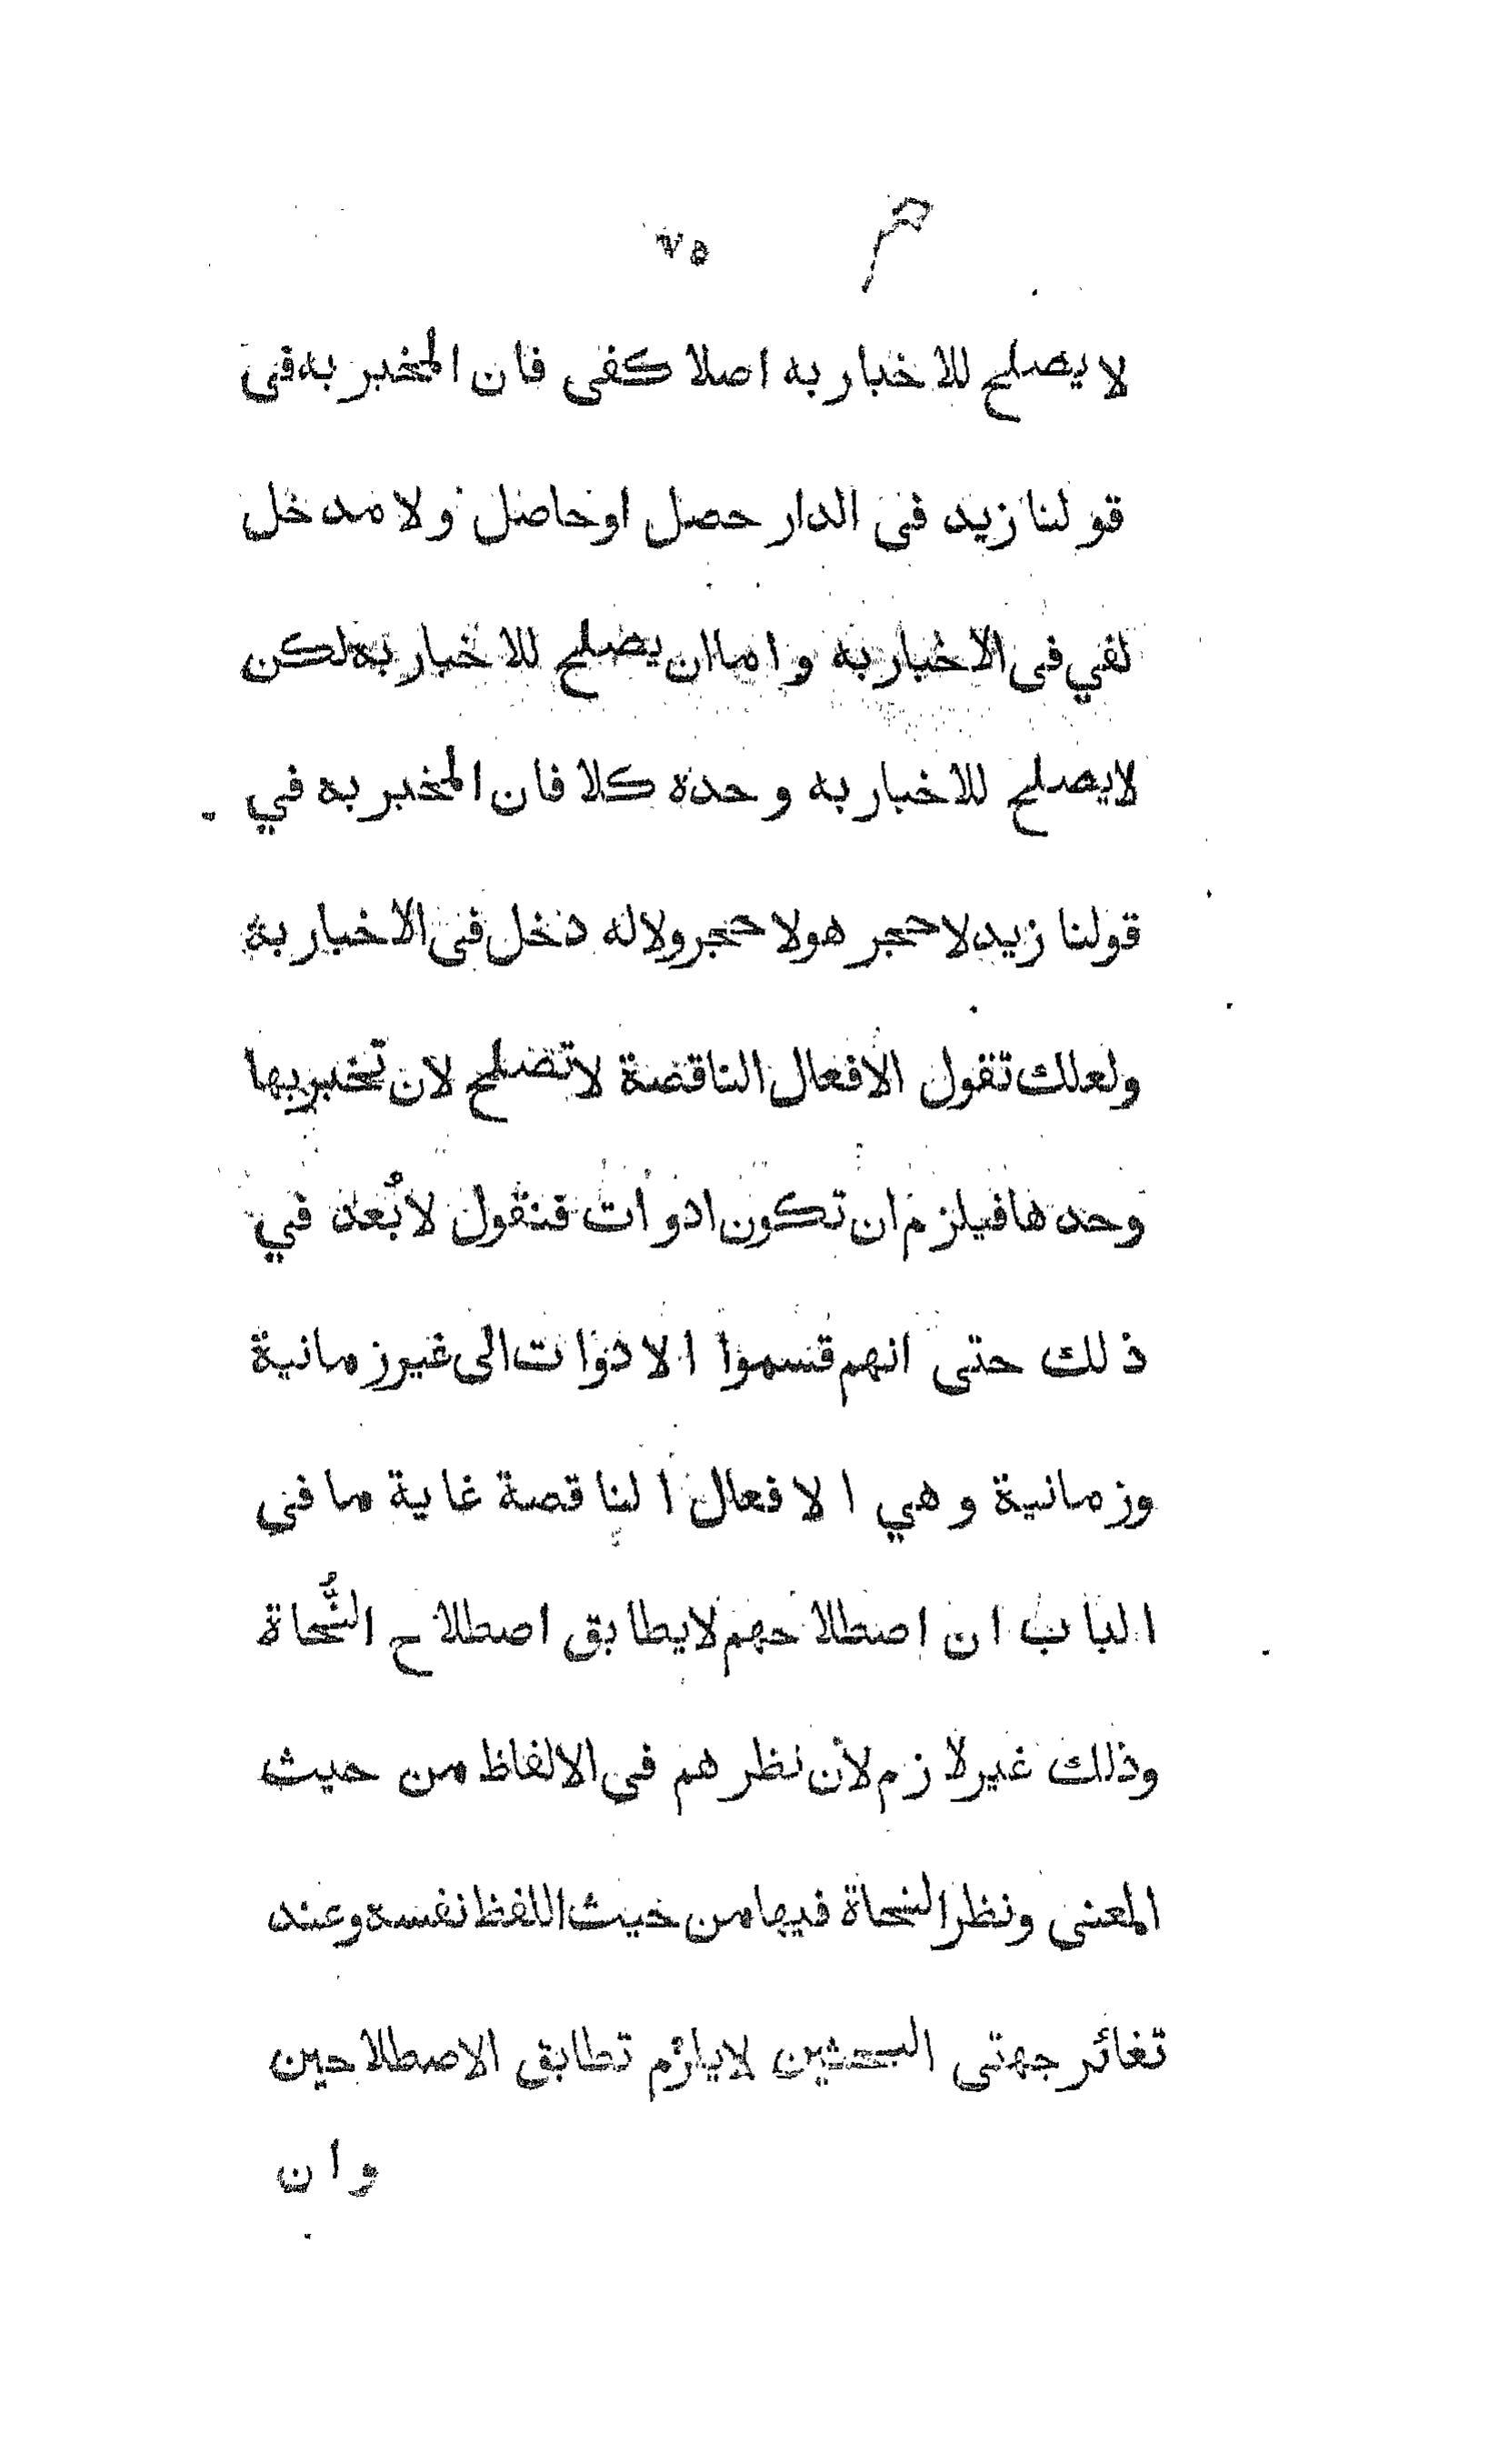 ٧٥
لا يصلح للاخبار به اصلا كفى فان المخبر به فى
قولنا زيد فى الدار حصل او حاصل ولا مدخل
لفي فى الاخبار به واما ان يصلح للاخبار به لكن
لا يصلح للاخبار به وحده كلا فان المخبر به في
قولنا زيد لا حجر هو لا حجر ولا له دخل فى الاخبار به
ولعلك تقول الافعال الناقصة لا تصلح لان تخبر بها
وحدها فيلزم ان تكون ادوات فنقول لا بُعد في
ذلك حتى انهم قسموا الادوات الى غير زمانية
وزمانية وهي الافعال الناقصة غاية ما في
الباب ان اصطلاحهم لا يطابق اصطلاح النُّحاة
وذلك غير لازم لأن نظرهم في الالفاظ من حيث
المعنى ونظر النحاة فيها من حيث اللفظ نفسه وعند
تغائر جهتى البحثين لا يلزم تطابق الاصطلاحين
وان